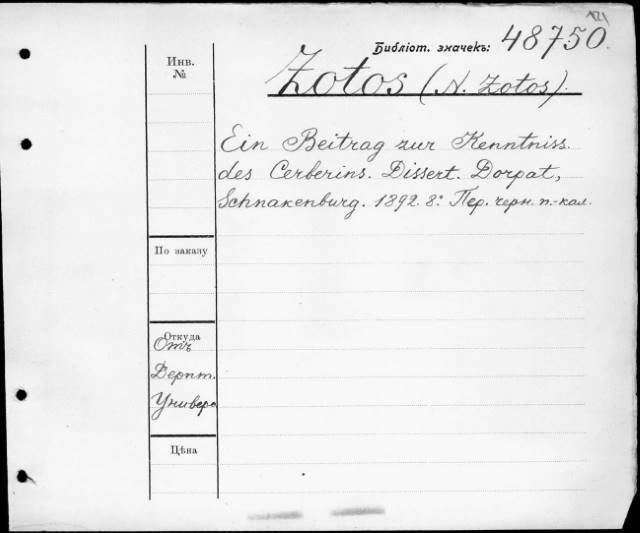 Библіот. значекъ: 48750.
Инв.
№
Zotos (A. Zotos).
Ein Beitrag zur Kenntniss
des Cerberins. Dissert. Dorpat,
Schnakenburg. 1892. 8º. Пер. черн. п.-кал.
По заказу
Откуда
Отъ
Дерпт.
Универс
Цѣна